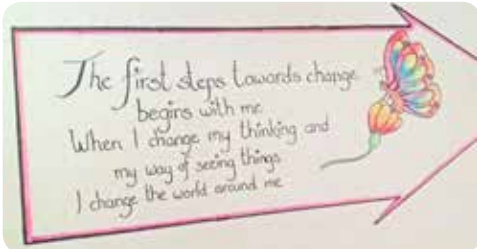 The first steps towards change
begins with me
When I change my thinking and
my way of seeing things
I change the world around me